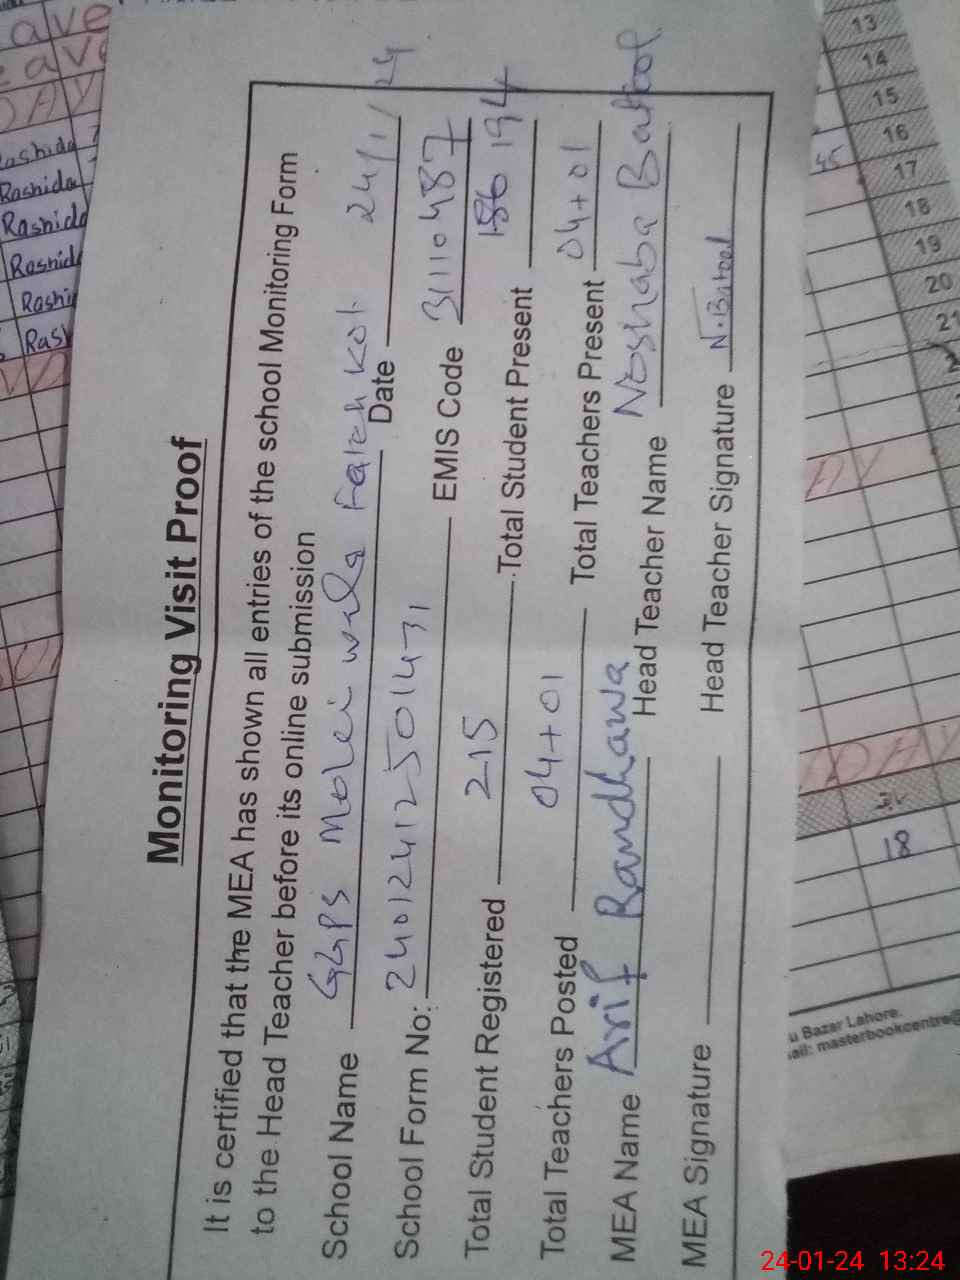 Monitoring Visit Proof
It is certified that the MEA has shown all entries of the school Monitoring Form
to the Head Teacher before its online submission
School Name GGPS Molei wala Fateh Kot Date 24/1/24
School Form No: 2401241250 1471 EMIS Code 31110487
Total Student Registered 215 Total Student Present 186 194
Total Teachers Posted 04+01 Total Teachers Present 04+01
MEA Name Arif Randhawa Head Teacher Name Noshaba Batool
MEA Signature Head Teacher Signature N.Batool
ave
ave
DAY
Rashida
Rashida
Rashida
Rashid
Rashi
Ras
13
14
15
16
17
18
19
20
21
AY
DAY
18
u Bazar Lahore.
ail: masterbookcentre@
24-01-24 13:24